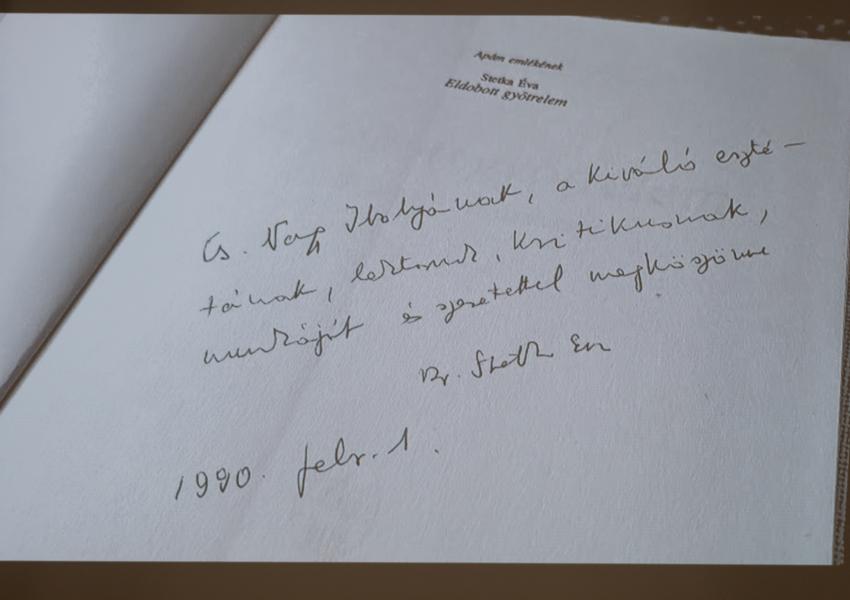 Apám emlékének
Stetka Éva
Eldobott gyötrelem
Cs. Nagy Ibolyának, a kiváló eszté-
tának, lektornak, kritikusnak,
munkáját és szeretettel megköszönve
Dr. Stetka Éva
1990. febr. 1.